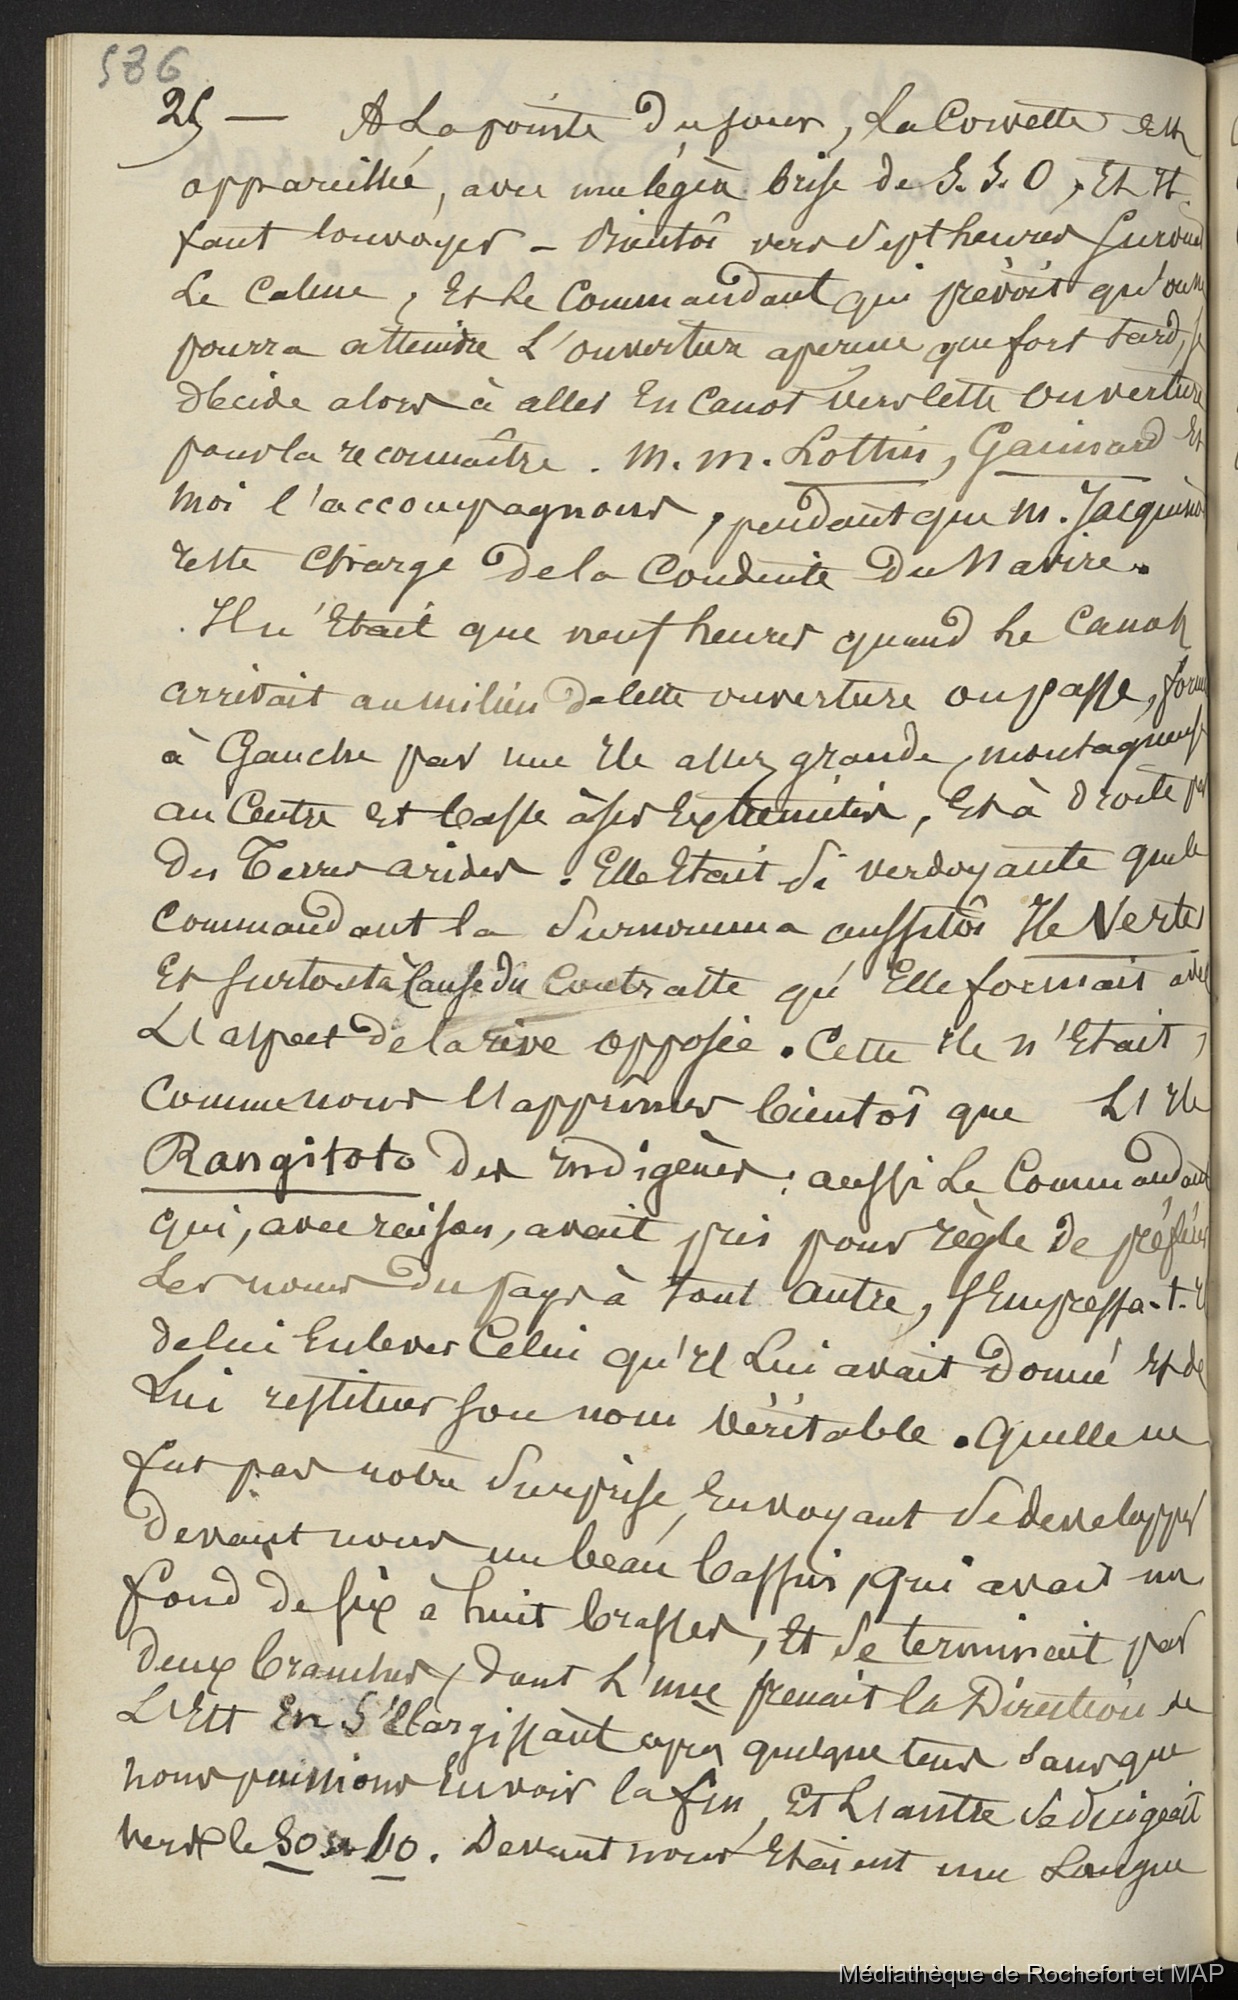 586
25 — A La pointe du jour, La Corvette est
appareillée, avec une légère brise de S. S. O, Et Il
faut louvoyer — Bientôt vers Sept heures Survient
Le Calme, Et Le Commandant qui prévoit qu'on ne
pourra atteindre L'ouverture aperçue que fort tard, se
décide alors à aller En Canot vers cette Ouverture
pour la reconnaître. M. M. Lottin, Gaimard Et
moi l'accompagnons, pendant que M. Jacquinot
reste Chargé de la Conduite Du Navire.
Il n'Etait que neuf heures quand Le Canot
arrivait au milieu de cette ouverture ou passe, formée
à Gauche par une Ile assez grande, montagneuse
au Centre Et basse à ses Extrémités, Et à droite par
Des Terres arides. Elle Etait Si verdoyante que le
Commandant la Surnomma aussitôt Ile Verte
Et surtout à Cause du Contraste qu'Elle formait avec
L'aspect de la rive opposée. Cette Ile n'Etait,
Comme nous l'apprîmes bientôt que L'Ile
Rangitoto des Indigènes : aussi Le Commandant
qui, avec raison, avait pris pour règle De préférer
Les noms Du pays à tout autre, S'Empressa-t-Il
de lui Enlever Celui qu'Il Lui avait Donné Et de
Lui restituer son nom Véritable. Quelle ne
fut pas notre Surprise, En voyant Se développer
Devant nous un beau bassin, qui avait un
fond de six à huit brasses, Et Se terminait par
Deux branches, dont L'une prenait la Direction de
L'Est En S'Elargissant après quelque tems Sans que
nous puissions En voir la fin, Et L'autre Se dirigeait
vers le SO ou l'O. Devant nous Etaient une Longue
Médiathèque de Rochefort et MAP